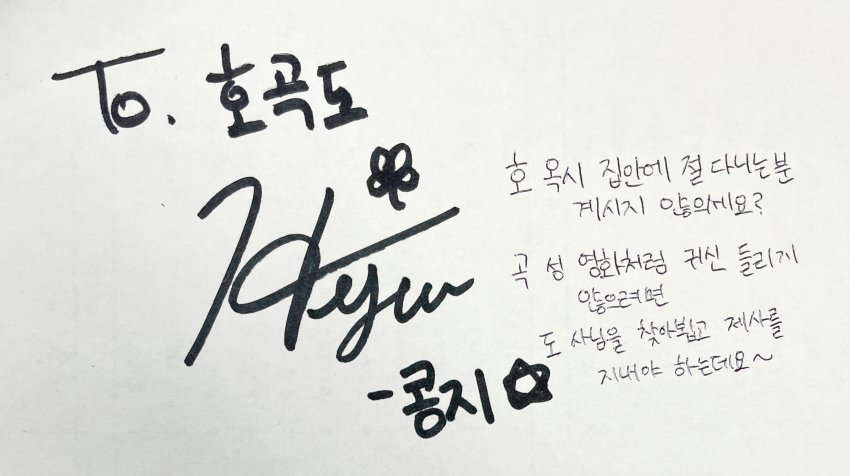 To. 호곡도
Hyun
-콩지
호 옥시 집안에 절 다니는분
계시지 않으세요?
곡 성 영화처럼 귀신 들리기
않으려면
도 사님을 찾아뵙고 제사를
지내야 하는데요~